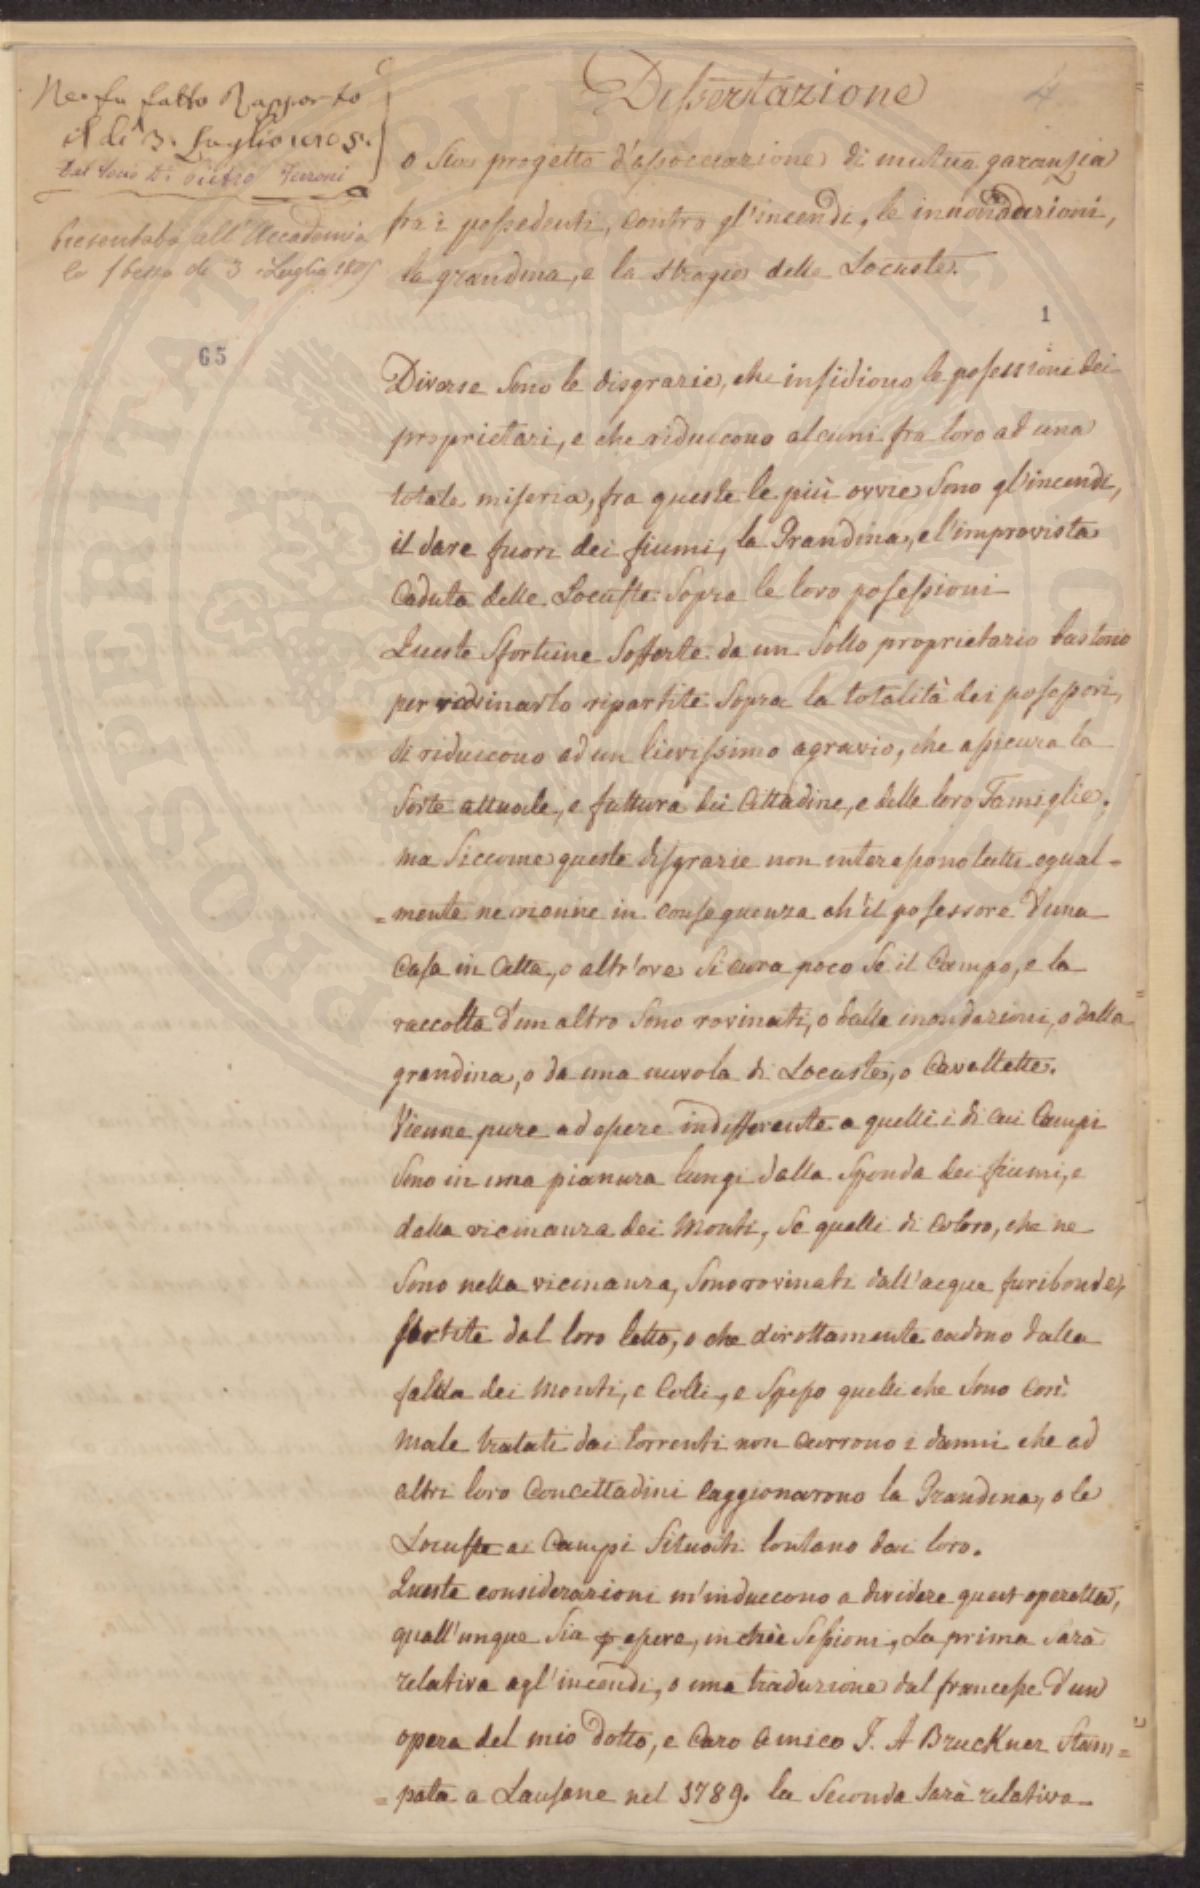 Ne fu fatto Rapporto
il dì 3. Luglio 1805.
dal Socio Dr. Pietro Ferroni
Presentata all'Accademia
lo stesso dì 3 Luglio 1805
65
Dissertazione
4
o sia progetto d'associazione di mutua garanzia
fra i possedenti, contro gl'incendi, le innondazioni,
la grandina, e la strage delle Locuste.
1
Diverse sono le disgrazie, che insidiono le possessioni dei
proprietari, e che riducono alcuni fra loro ad una
totale miseria, fra queste le più ovvie sono gl'incendi,
il dare fuori dei fiumi, la Grandina, e l'improvista
caduta delle Locuste sopra le loro possessioni
Queste sfortune sofferte da un sollo proprietario bastono
per rovinarlo ripartite sopra la totalità dei possessori,
si riducono ad un lievissimo agravio, che assicura la
sorte attuale, e futtura dei Cittadine, e delle loro Famiglie.
ma siccome queste disgrazie non interessono tutti egual=
=mente ne vienne in conseguenza ch'il possessore d'una
Casa in Citta, o altr'ove si cura poco se il Campo, e la
raccolta d'un altro sono rovinati, o dalle inondazioni, o dalla
grandina, o da una nuvola di Locuste, o Cavallette.
Vienne pure ad essere indifferente a quelli i di cui Campi
sono in una pianura lungi dalla sponda dei fiumi, e
dalla vicinanza dei Monti, se quelli di coloro, che ne
sono nella vicinanza, sono rovinati dall'acque furibonde,
sortite dal loro letto, o che dirottamente cadono dalla
falda dei Monti, e Colli, e spesso quelli che sono così
male tratati dai torrenti non currono i danni che ad
altri loro Concittadini caggionarono la Grandina, o le
Locuste ai Campi situati lontano dai loro.
Queste considerazioni m'inducono a dividere quest operetta,
quall'unque sia essere, in sessioni, La prima sarà
relativa agl'incendi, o una traduzione dal francese d'un
opera del mio dotto, e caro amico J. A Bruckner stam=
=pata a Lausane nel 1789. la seconda sarà relativa